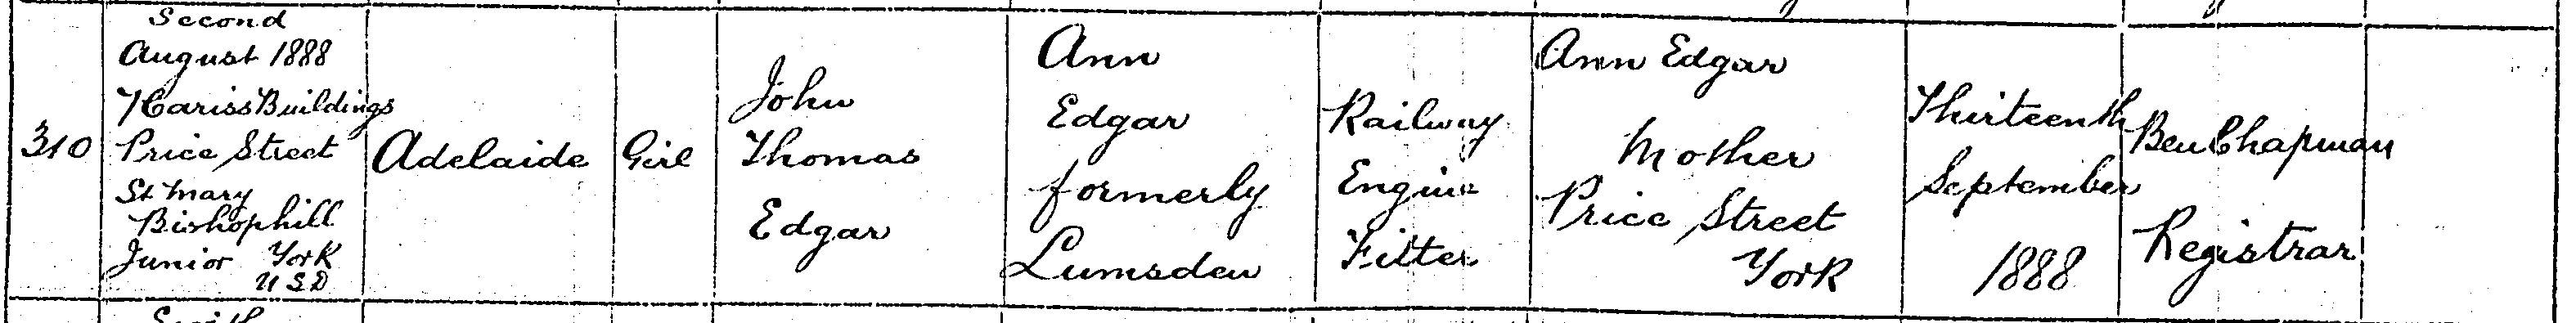 310
Second
August 1888
Hariss Buildings
Price Street
St Mary
Bishophill
Junior York
U S D
Adelaide
Girl
John
Thomas
Edgar
Ann
Edgar
formerly
Lumsden
Railway
Engine
Fitter
Ann Edgar
Mother
Price Street
York
Thirteenth
September
1888
Ben Chapman
Registrar